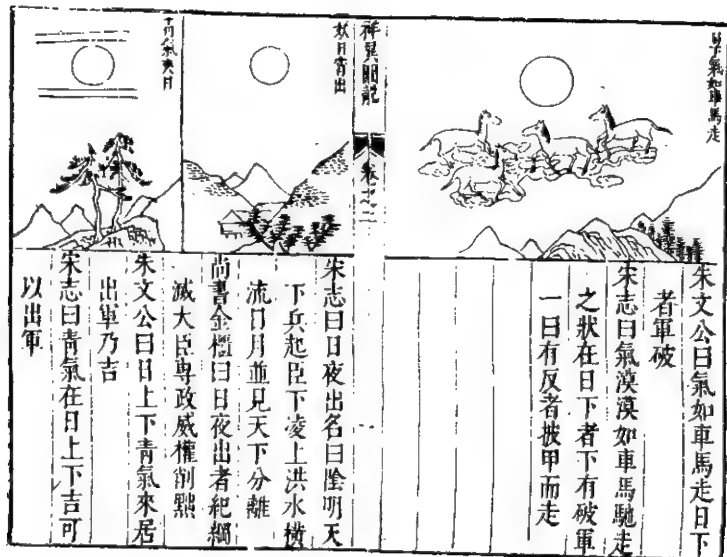 氣如車馬走
朱文公曰氣如車馬走日下
者軍破
宋志曰氣漠漠如車馬馳走
之狀在日下者下有破軍
一曰有反者披甲而走
祥異圖說
卷之二
妖日宵出
宋志曰日夜出名曰陰明天
下兵起臣下凌上洪水橫
流日月並見天下分離
尚書金櫃曰日夜出者紀綱
滅大臣專政威權削黜
青氣夾日
朱文公曰日上下青氣來居
出軍乃吉
宋志曰青氣在日上下吉可
以出軍